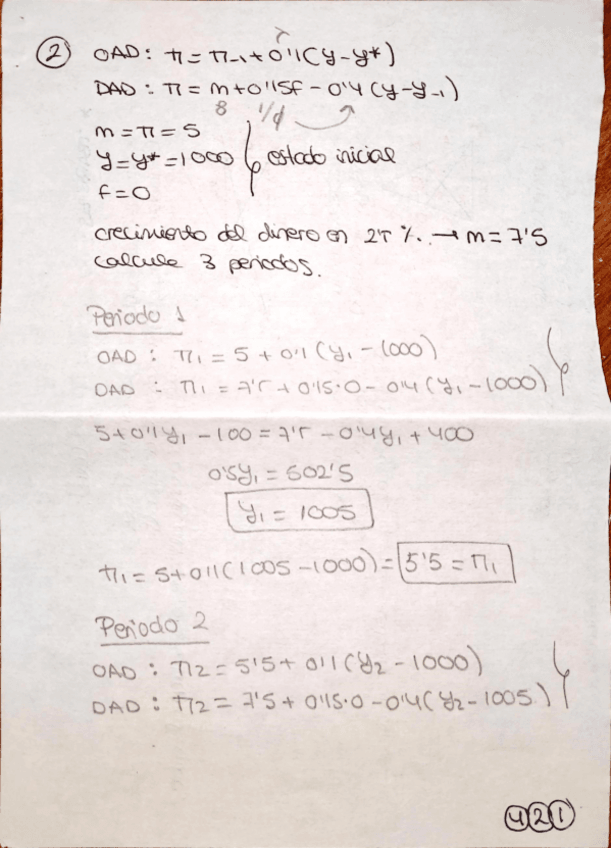 2 OAD: π = π-1 + 0'1(y-y*)
DAD: π = m + 0'15f - 0'4 (y-y-1)
m = π = 5
y = y* = 1000 } estado inicial
f = 0
crecimiento del dinero en 2'5 %. → m = 7'5
calcule 3 periodos.
Periodo 1
OAD: π1 = 5 + 0'1 (y1 - 1000)
DAD: π1 = 7'5 + 0'15·0 - 0'4 (y1 - 1000) }
5 + 0'1y1 - 100 = 7'5 - 0'4y1 + 400
0'5y1 = 502'5
y1 = 1005
π1 = 5 + 0'1 (1005 - 1000) = 5'5 = π1
Periodo 2
OAD: π2 = 5'5 + 0'1 (y2 - 1000)
DAD: π2 = 7'5 + 0'15·0 - 0'4 (y2 - 1005) }
421